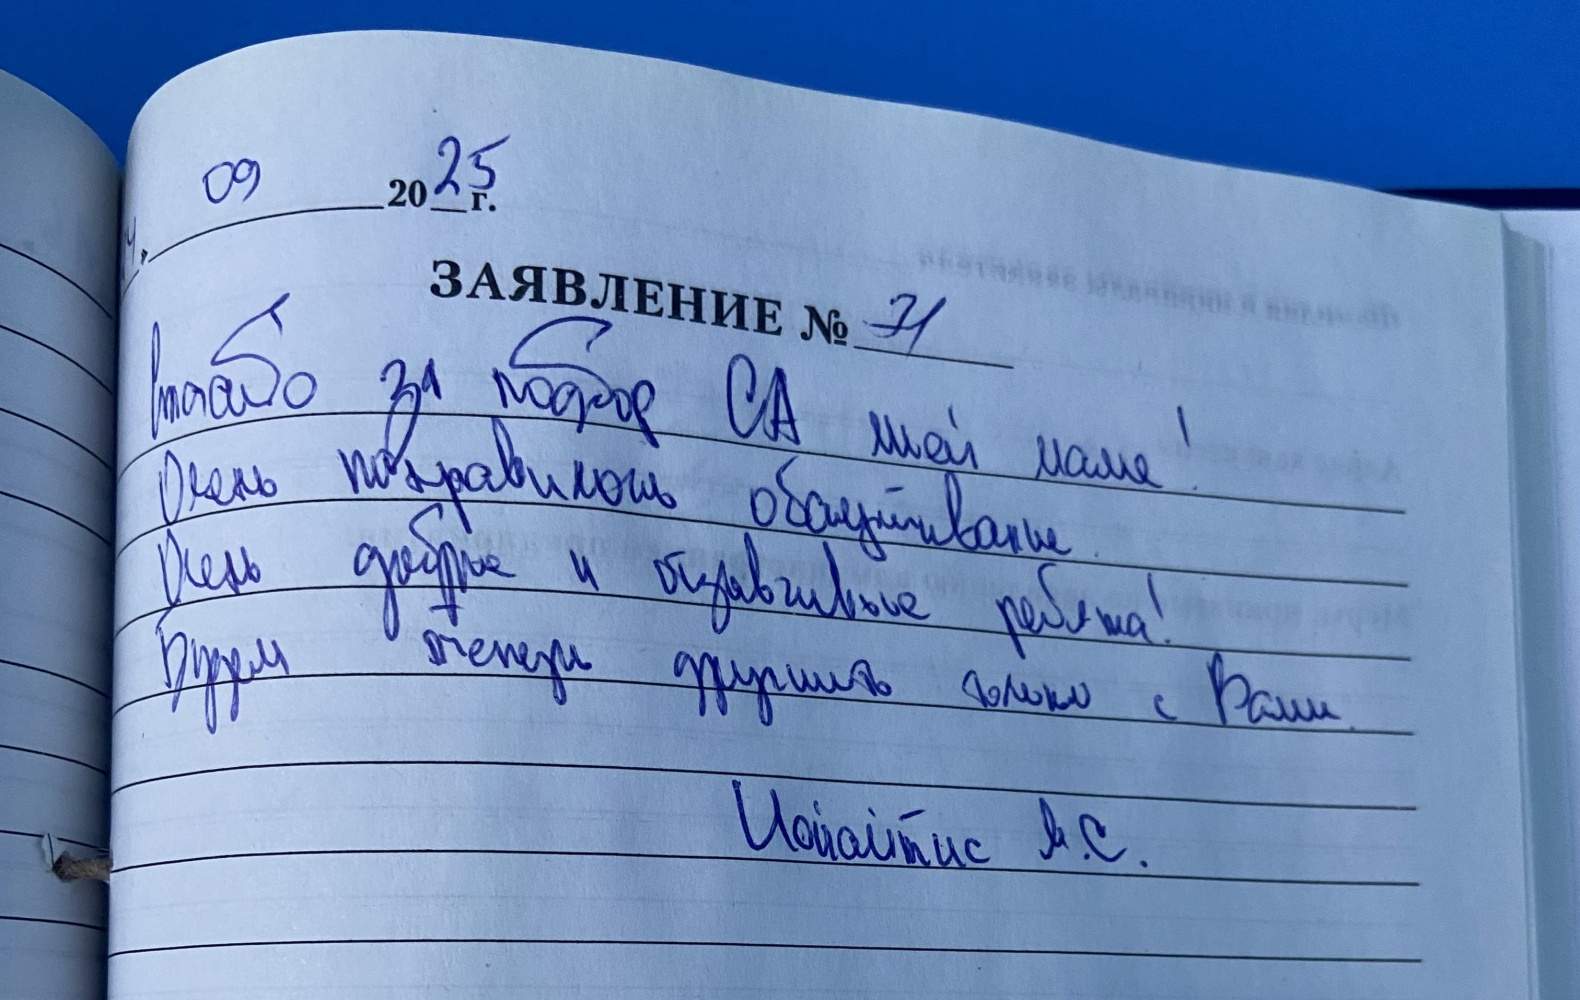 09 2025 г.
ЗАЯВЛЕНИЕ № 71
Спасибо за подбор СА моей маме!
Очень понравилось обслуживание.
Очень добрые и отзывчивые ребята!
Будем теперь дружить только с Вами.
А.С.